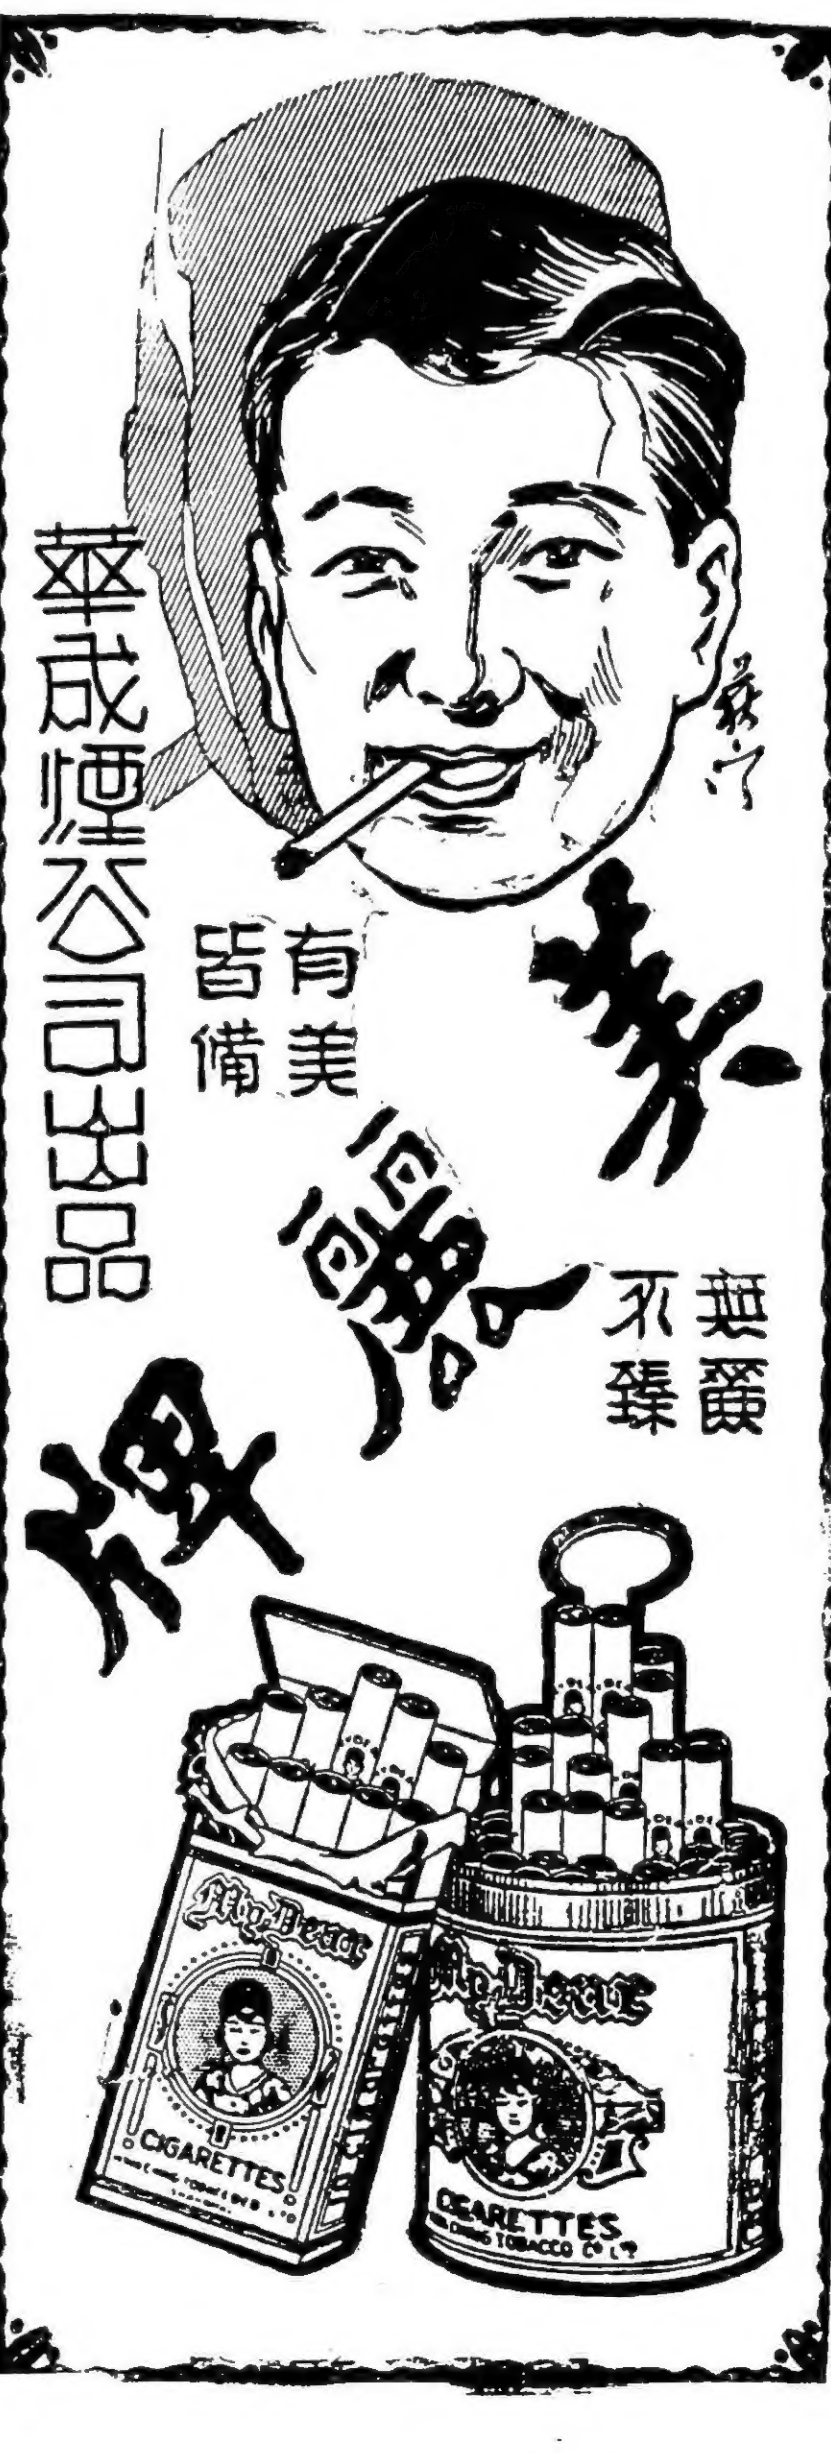 美麗牌
有美
皆備
無麗
不臻
華成煙公司出品
My Dear
CIGARETTES
My Dear
CIGARETTES
CHING TOBACCO Co LTD